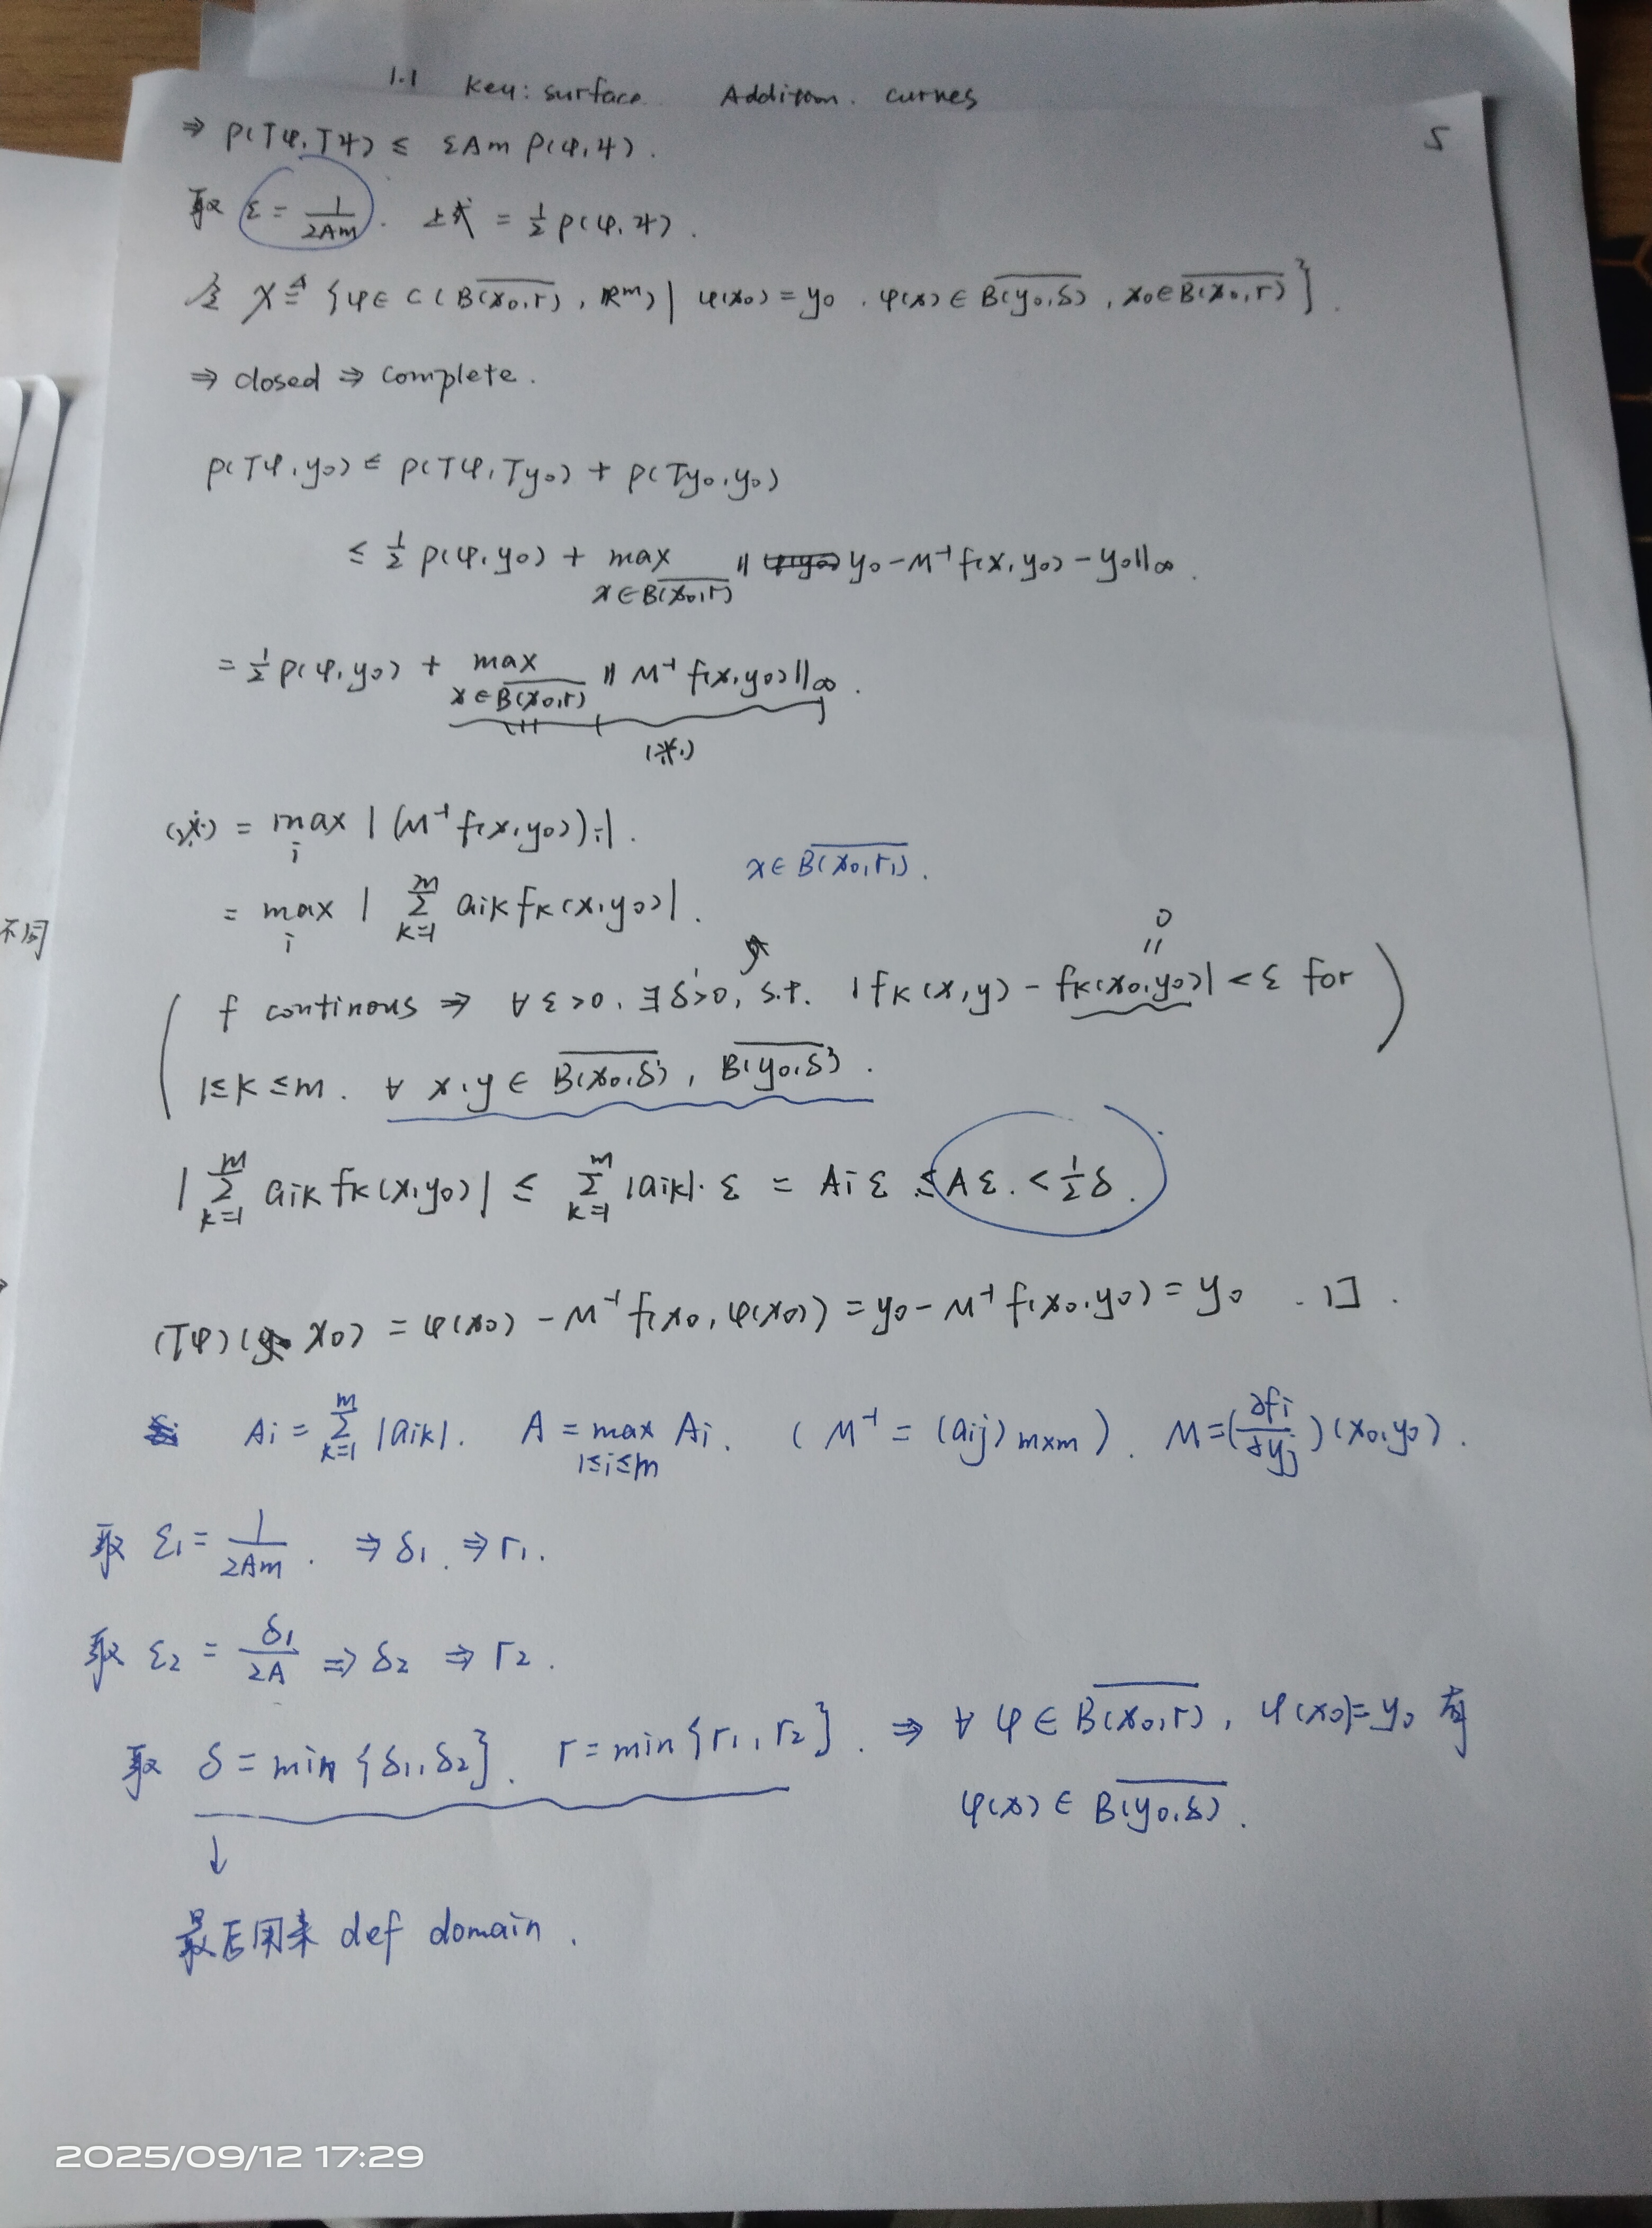 1.1 Key: surface. Addition. curves
5
⇒ ρ(Tφ,Tψ) ≤ εAm ρ(φ,ψ).
取 ε = 1/(2Am). 上式 = 1/2 ρ(φ,ψ).
令 X ≜ {φ ∈ C(\overline{B(x₀,r)}, ℝᵐ) | φ(x₀) = y₀, φ(x) ∈ \overline{B(y₀,δ)}, x₀ ∈ \overline{B(x₀,r)}}.
⇒ closed ⇒ complete.
ρ(Tφ,y₀) ≤ ρ(Tφ,Ty₀) + ρ(Ty₀,y₀)
≤ 1/2 ρ(φ,y₀) + max_{x∈\overline{B(x₀,r)}} ‖y₀ - M⁻¹f(x,y₀) - y₀‖∞.
= 1/2 ρ(φ,y₀) + max_{x∈\overline{B(x₀,r)}} ‖M⁻¹f(x,y₀)‖∞.
(※)
(※) = max_i |(M⁻¹f(x,y₀))ᵢ|.
x ∈ \overline{B(x₀,r₁)}.
= max_i |∑_{k=1}^m a_{ik} f_k(x,y₀)|.
0
=
f continous ⇒ ∀ε>0, ∃δ'>0, s.t. |f_k(x,y) - f_k(x₀,y₀)| < ε for
1≤k≤m. ∀ x,y ∈ \overline{B(x₀,δ')}, \overline{B(y₀,δ')}.
|∑_{k=1}^m a_{ik} f_k(x,y₀)| ≤ ∑_{k=1}^m |a_{ik}|·ε = Aᵢε ≤ Aε. < 1/2 δ.
(Tφ)(x₀) = φ(x₀) - M⁻¹f(x₀,φ(x₀)) = y₀ - M⁻¹f(x₀,y₀) = y₀. □.
Aᵢ = ∑_{k=1}^m |a_{ik}|. A = max_{1≤i≤m} Aᵢ. (M⁻¹ = (a_{ij})_{m×m}). M = (∂fᵢ/∂yⱼ)(x₀,y₀).
取 ε₁ = 1/(2Am). ⇒ δ₁. ⇒ r₁.
取 ε₂ = δ₁/(2A) ⇒ δ₂ ⇒ r₂.
取 δ = min{δ₁,δ₂}. r = min{r₁,r₂}. ⇒ ∀ φ ∈ \overline{B(x₀,r)}, φ(x₀) = y₀ 有
φ(x) ∈ \overline{B(y₀,δ)}.
↓
最后用来 def domain.
不同
2025/09/12 17:29